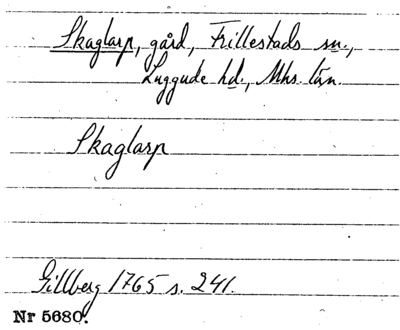 Skaglarp, gård, Frillestads sn.,
Luggude hd., Mhs. län.
Skaglarp
Gillberg 1765 s. 241.
Nr 5680.